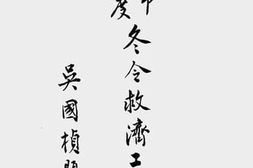 度冬令救濟工
吳國楨